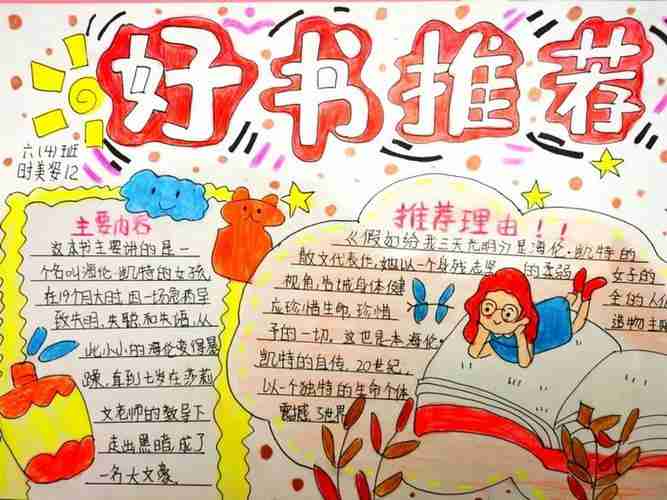 好书推荐
六(4)班
时美姿12
主要内容
这本书主要讲的是一
个名叫海伦·凯特的女孩,
在19个月大时因一场急病导
致失明、失聪和失语,从
此小小的海伦变得暴
躁,直到七岁在莎莉
文老师的教导下
走出黑暗,成了
一名大文豪.
推荐理由!!
《假如给我三天光明》是海伦·凯特的
散文代表作,她以一个身残志坚的柔弱女子的
视角,告诫身体健全的人们
应珍惜生命,珍惜造物主
予的一切。这也是本海伦·
凯特的自传,20世纪,
以一个独特的生命个体
震撼了世界